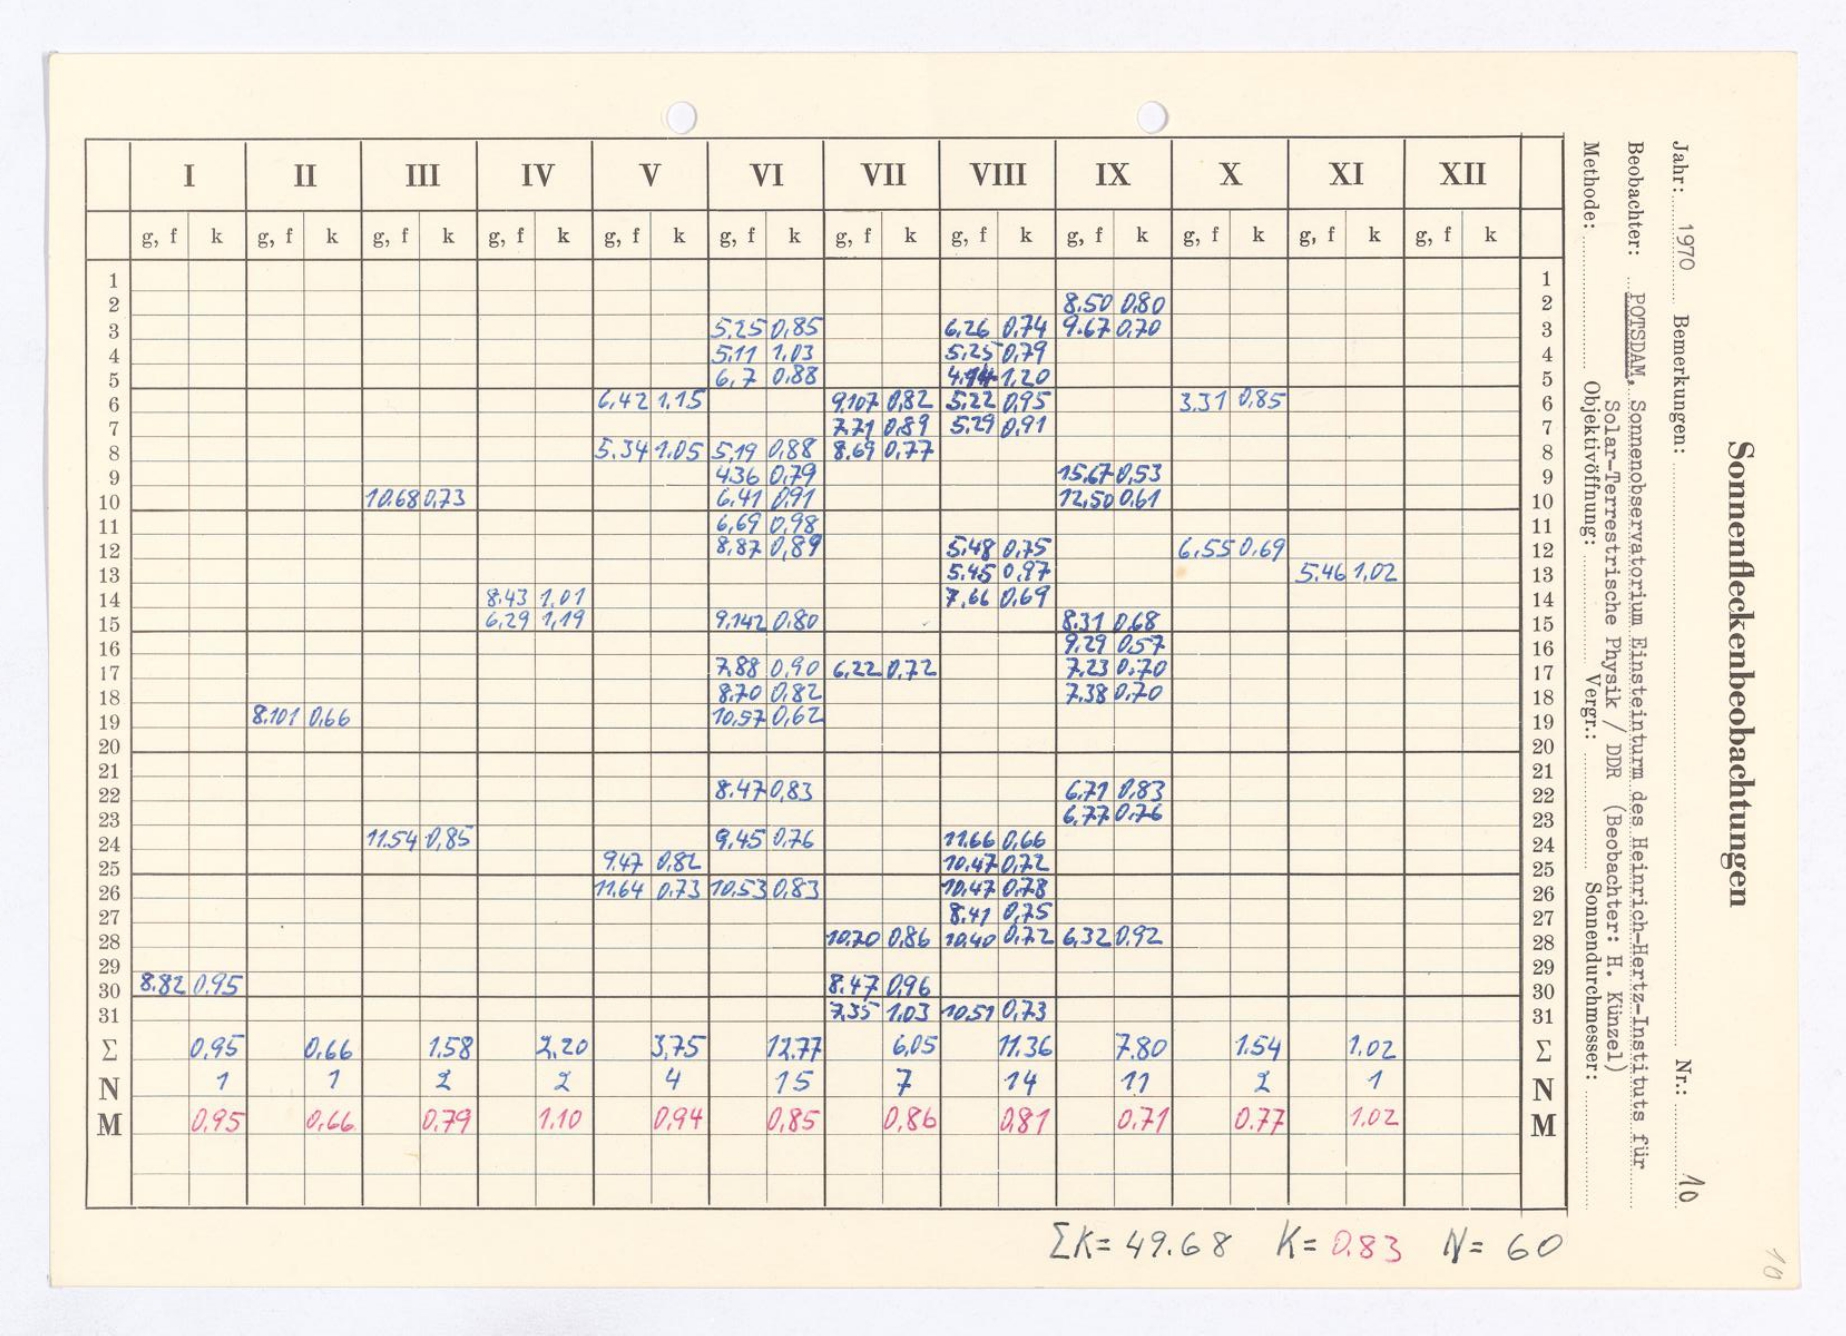 Sonnenfleckenbeobachtungen
Jahr: 1970 Bemerkungen: Nr.: 10
Beobachter: POTSDAM, Sonnenobservatorium Einsteinturm des Heinrich-Hertz-Instituts für
Solar-Terrestrische Physik / DDR (Beobachter: H. Künzel)
Methode: Objektivöffnung: Vergr.: Sonnendurchmesser:
I II III IV V VI VII VIII IX X XI XII
g, f k g, f k g, f k g, f k g, f k g, f k g, f k g, f k g, f k g, f k g, f k g, f k
1 1
2 8.50 0,80 2
3 5,25 0,85 6,26 0,74 9.67 0,70 3
4 5,11 1,03 5,25 0,79 4
5 6,7 0,88 1,20 5
6 6,42 1,15 9,107 0,82 5,22 0,95 3,31 0,85 6
7 7,71 0,89 5,29 0,91 7
8 5,34 1,05 5,19 0,88 8,69 0,77 8
9 4,36 0,79 15,67 0,53 9
10 10.68 0,73 6,41 0,91 12,50 0,61 10
11 6,69 0,98 11
12 8,87 0,89 5,48 0,75 6,55 0,69 12
13 5,45 0,97 5,46 1,02 13
14 8,43 1,01 7,66 0,69 14
15 6,29 1,19 9,142 0,80 8.31 0,68 15
16 9,29 0,57 16
17 7,88 0,90 6,22 0,72 7,23 0,70 17
18 8,70 0,82 7,38 0,70 18
19 8,101 0,66 10,57 0,62 19
20 20
21 21
22 8,47 0,83 6,71 0,83 22
23 6,77 0,76 23
24 11.54 0,85 9,45 0,76 11,66 0,66 24
25 9,47 0,82 10,47 0,72 25
26 11,64 0,73 10,53 0,83 10,47 0,78 26
27 8,41 0,75 27
28 10,70 0,86 10,40 0,72 6,32 0,92 28
29 29
30 8.82 0,95 8,47 0,96 30
31 7,35 1,03 10,51 0,73 31
Σ 0,95 0,66 1,58 2,20 3,75 12,77 6,05 11,36 7.80 1.54 1.02 Σ
N 1 1 2 2 4 15 7 14 11 2 1 N
M 0,95 0,66 0,79 1,10 0,94 0,85 0,86 0,81 0,71 0.77 1,02 M
ΣK= 49.68 K= 0.83 N= 60
10